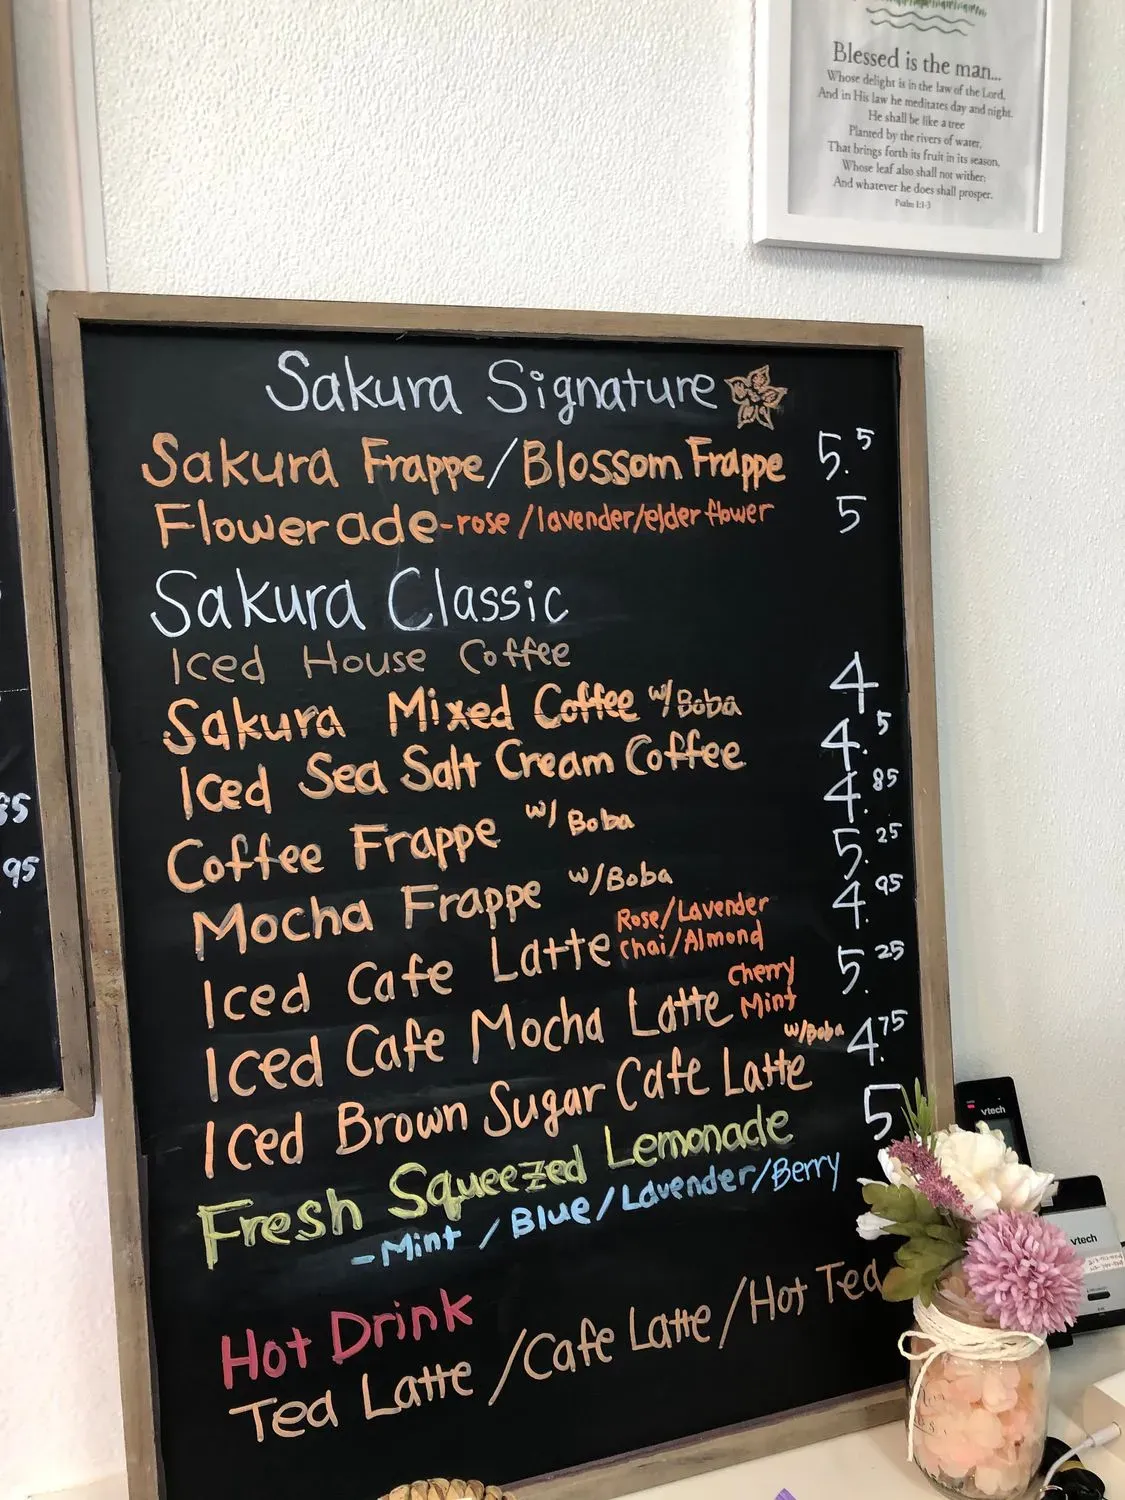 Blessed is the man...
Whose delight is in the law of the Lord,
And in His law he meditates day and night.
He shall be like a tree
Planted by the rivers of water,
That brings forth its fruit in its season,
Whose leaf also shall not wither;
And whatever he does shall prosper.
Psalm 1:1-3
Sakura Signature
Sakura Frappe/Blossom Frappe 5.5
Flowerade-rose/lavender/elderflower 5
Sakura Classic
Iced House Coffee 4
Sakura Mixed Coffee w/Boba 4.5
Iced Sea Salt Cream Coffee 4.85
Coffee Frappe w/ Boba 5.25
Mocha Frappe w/Boba 4.95
Iced Cafe Latte Rose/Lavender
Chai/Almond 5.25
Iced Cafe Mocha Latte Cherry
Mint 4.75
Iced Brown Sugar Cafe Latte w/Boba 5
Fresh Squeezed Lemonade
-Mint/Blue/Lavender/Berry
Hot Drink
Tea Latte/Cafe Latte/Hot Tea
85
95
vtech
vtech